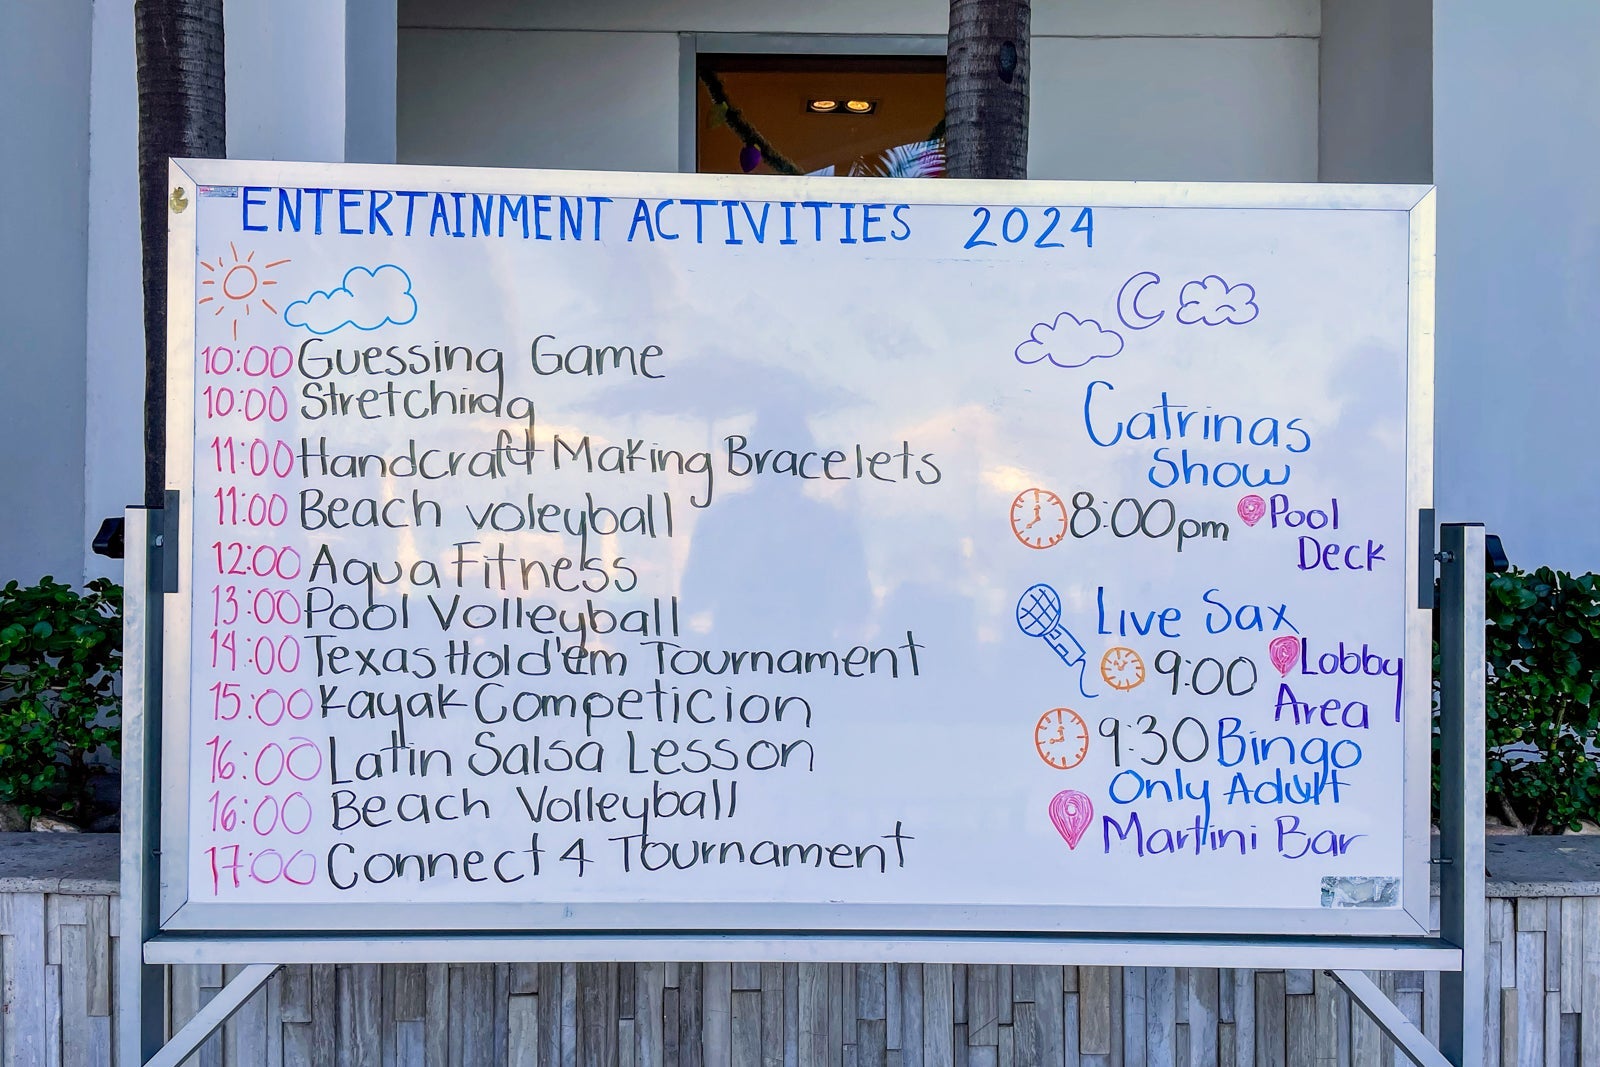 ENTERTAINMENT ACTIVITIES 2024
10:00 Guessing Game
10:00 Stretching
11:00 Handcraft Making Bracelets
11:00 Beach voleyball
12:00 Aqua Fitness
13:00 Pool Volleyball
14:00 Texas Hold'em Tournament
15:00 Kayak Competicion
16:00 Latin Salsa Lesson
16:00 Beach Volleyball
17:00 Connect 4 Tournament
Catrinas
Show
8:00pm Pool
Deck
Live Sax
9:00 Lobby
Area
9:30 Bingo
Only Adult
Martini Bar